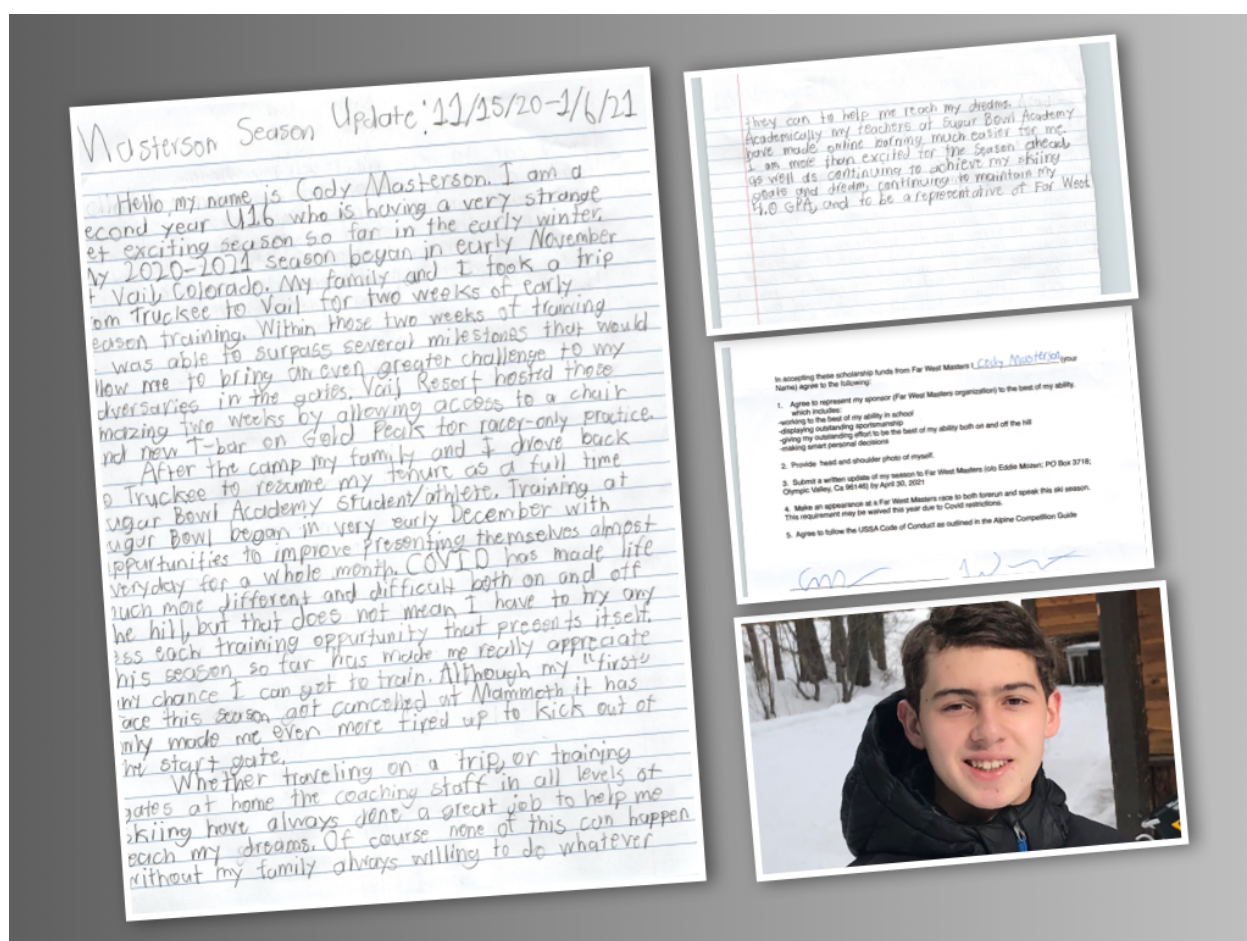 Masterson Season Update: 11/15/20-1/6/21
Hello, my name is Cody Masterson. I am a
econd year U16 who is having a very strange
et exciting season so far in the early winter.
y 2020-2021 season began in early November
Vail, Colorado. My family and I took a trip
om Truckee to Vail for two weeks of early
eason training. Within those two weeks of training
was able to surpass several milestones that would
llow me to bring an even greater challenge to my
dversaries in the gates. Vail Resort hosted those
mazing two weeks by allowing access to a chair
nd new T-bar on Gold Peak for racer-only practice.
After the camp my family and I drove back
o Truckee to resume my tenure as a full time
ugar Bowl Academy student/athlete. Training at
ugar Bowl began in very early December with
ppurtunities to improve presenting themselves almost
veryday for a whole month. COVID has made life
uch more different and difficult both on and off
he hill, but that does not mean I have to hry any
ess each training oppurtunity that presents itself.
his season so far has made me really appreciate
ny chance I can get to train. Although my "first"
ace this season got cancelled at Mammoth it has
nly made me even more fired up to kick out of
he start gate.
Whether traveling on a trip, or training
gates at home the coaching staff in all levels of
skiing have always done a great job to help me
each my dreams. Of course none of this can happen
without my family always willing to do whatever
they can to help me reach my dreams.
Academically my teachers at Sugar Bowl Academy
have made online learning much easier for me.
I am more than excited for the season ahead,
as well as continuing to achieve my skiing
goals and dreams, continuing to maintain my
4.0 GPA, and to be a representative of Far West
In accepting these scholarship funds from Far West Masters I Cody Masterson (your
Name) agree to the following:
1. Agree to represent my sponsor (Far West Masters organization) to the best of my ability.
which includes:
-working to the best of my ability in school
-displaying outstanding sportsmanship
-giving my outstanding effort to be the best of my ability both on and off the hill
-making smart personal decisions
2. Provide head and shoulder photo of myself.
3. Submit a written update of my season to Far West Masters (c/o Eddie Mozen; PO Box 3718;
Olympic Valley, Ca 96146) by April 30, 2021
4. Make an appearance at a Far West Masters race to both forerun and speak this ski season.
This requirement may be waived this year due to Covid restrictions.
5. Agree to follow the USSA Code of Conduct as outlined in the Alpine Competition Guide